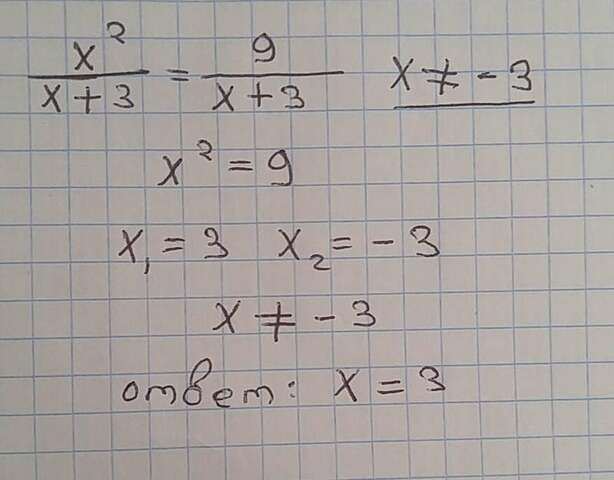 x²/(x+3) = 9/(x+3)  x ≠ -3
x² = 9
x₁ = 3  x₂ = -3
x ≠ -3
ответ: x = 3